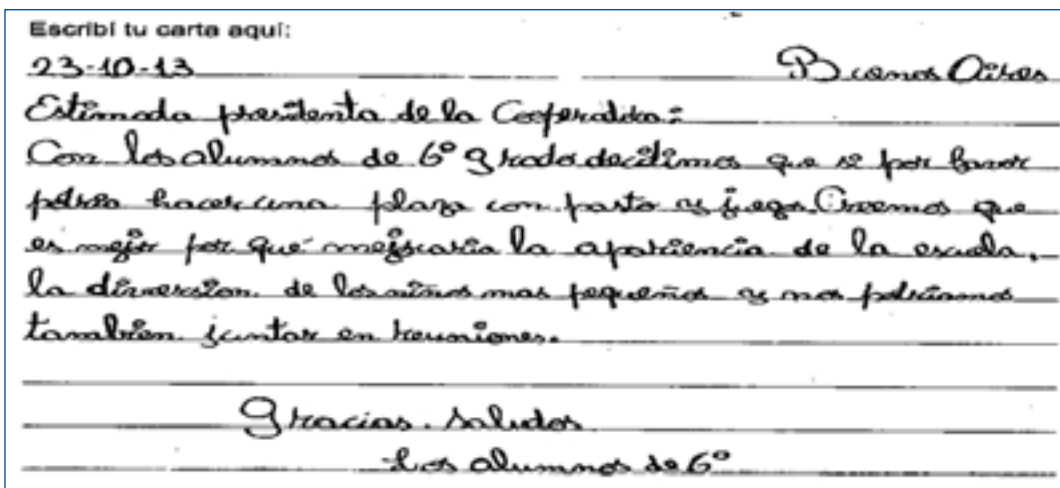 Escribí tu carta aquí:
23-10-13 Buenos Aires
Estimada presidenta de la Cooperadora:
Con los alumnos de 6° grado decidimos que si por favor
podria hacer una plaza con pasto y juegos. Creemos que
es mejor por qué mejoraria la apariencia de la escuela,
la diversion de los niños mas pequeños y nos podriamos
tambien juntar en reuniones.
Gracias. Saludos
Los alumnos de 6°